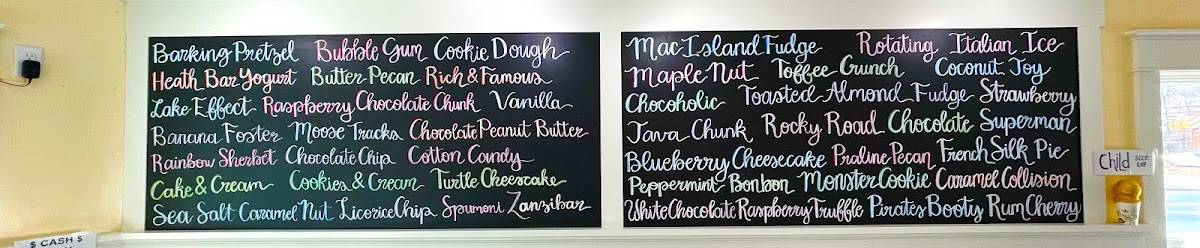 Barking Pretzel Bubble Gum Cookie Dough
Heath Bar Yogurt Butter Pecan Rich & Famous
Lake Effect Raspberry Chocolate Chunk Vanilla
Banana Foster Moose Tracks Chocolate Peanut Butter
Rainbow Sherbet Chocolate Chip Cotton Candy
Cake & Cream Cookies & Cream Turtle Cheesecake
Sea Salt Caramel Nut Licorice Chip Spumoni Zanzibar
Mac Island Fudge Rotating Italian Ice
Maple Nut Toffee Crunch Coconut Joy
Chocoholic Toasted Almond Fudge Strawberry
Java Chunk Rocky Road Chocolate Superman
Blueberry Cheesecake Praline Pecan French Silk Pie
Peppermint Bonbon Monster Cookie Caramel Collision
White Chocolate Raspberry Truffle Pirates Booty Rum Cherry
Child size cup
$ CASH $